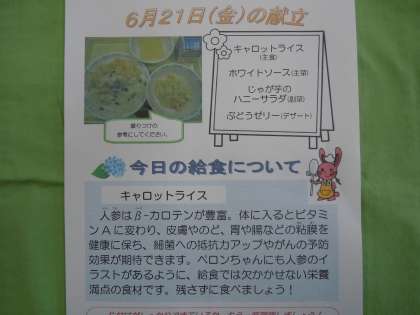 6月21日(金)の献立
キャロットライス
(主食)
ホワイトソース(主菜)
じゃが芋の
ハニーサラダ(副菜)
ぶどうゼリー(デザート)
盛りつけの
参考にしてください。
今日の給食について
キャロットライス
人参はβ-カロテンが豊富。体に入るとビタミ
ンAに変わり、皮膚やのど、胃や腸などの粘膜を
健康に保ち、細菌への抵抗力アップやがんの予防
効果が期待できます。ペロンちゃんにも人参のイ
ラストがあるように、給食では欠かせない栄養
満点の食材です。残さずに食べましょう!